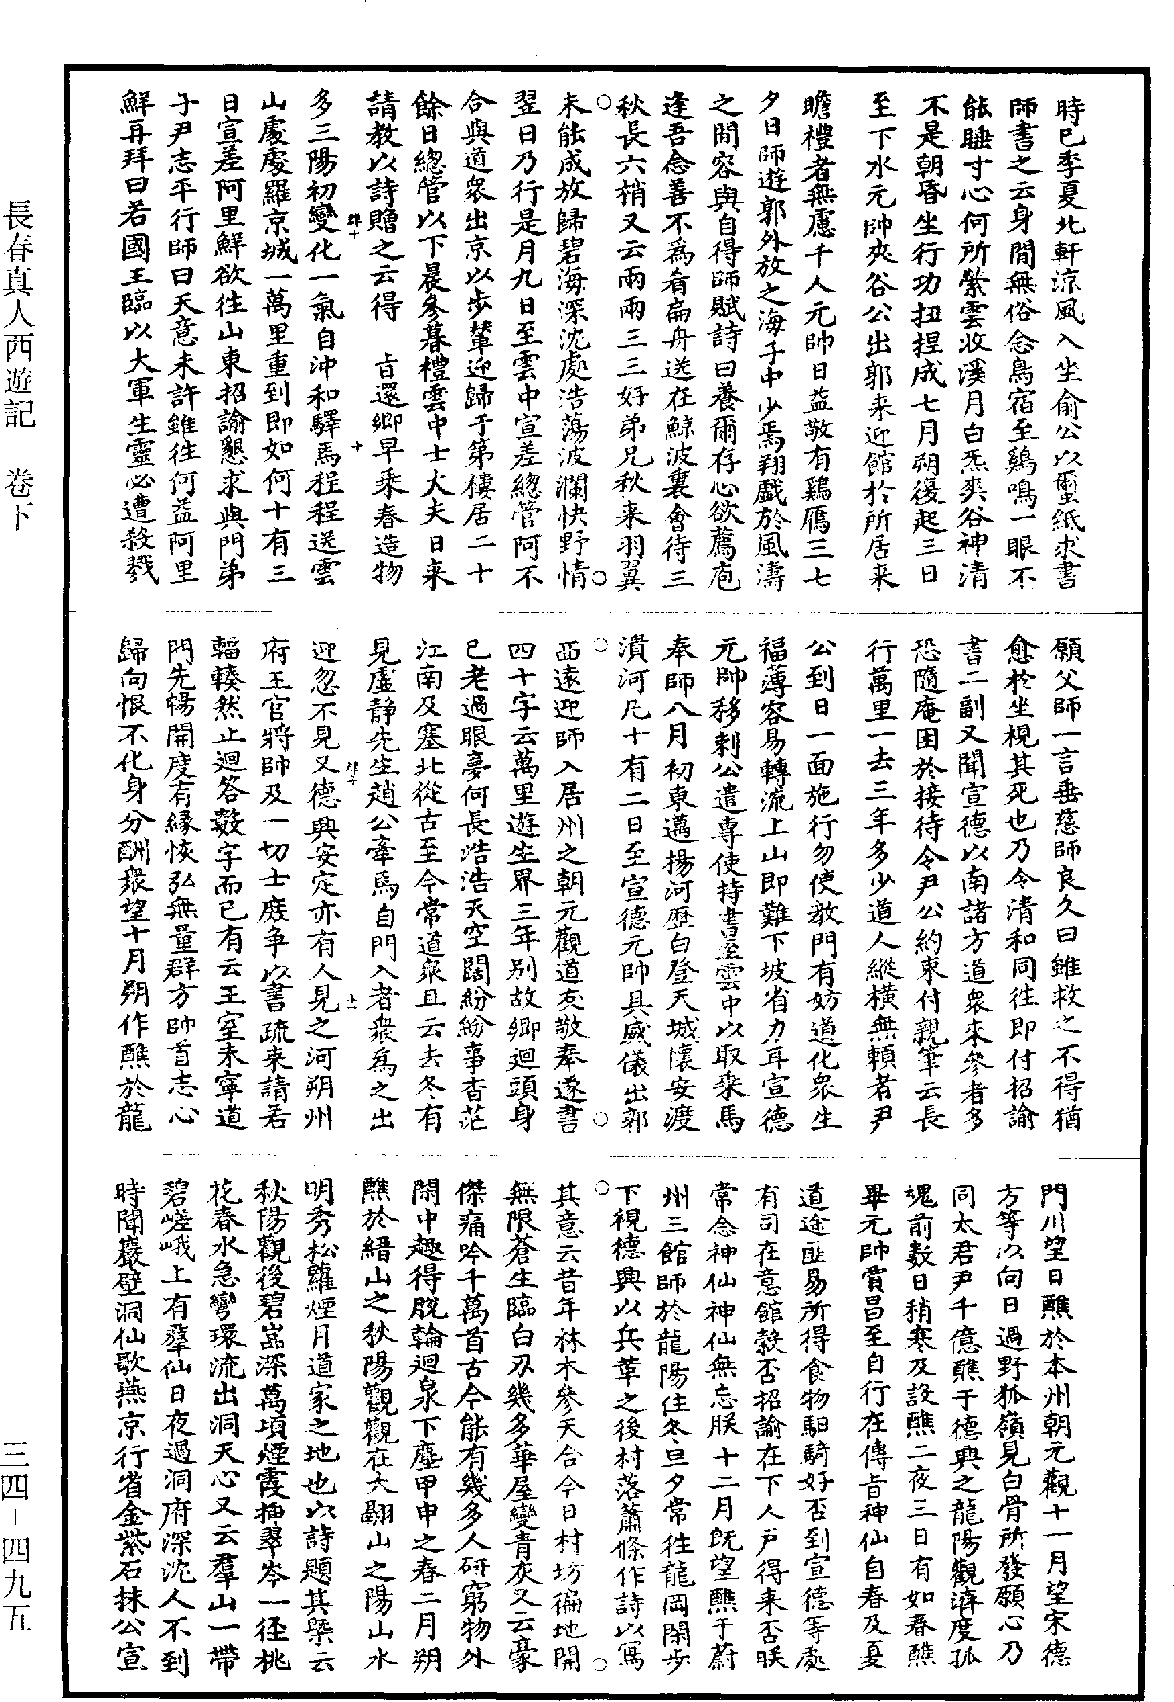 時已季夏北軒涼風入坐俞公以璽紙求書
師書之云身閒無俗念鳥宿至鷄鳴一眼不
能睡寸心何所縈雲收溪月白炁爽谷神清
不是朝昏坐行功扭捏成七月朔復起三日
至下水元帥夾谷公出郭来迎館於所居来
瞻禮者無慮千人元帥日益敬有鷄鴈三七
夕日師遊郭外放之海子中少焉翔戲於風濤
之間容與自得師賦詩曰養爾存心欲薦庖
逢吾念善不為肴扁舟送在鯨波裏會待三
秋長六梢又云兩兩三三好弟兄秋来羽翼
未能成放歸碧海深沈處浩蕩波瀾快野情
翌日乃行是月九日至雲中宣差總管阿不
合與道衆出京以步輦迎歸于第樓居二十
餘日總管以下晨參暮禮雲中士大夫日来
請教以詩贈之云得 旨還鄉早乘春造物
多三陽初變化一氣自沖和驛馬程程送雲
山處處羅京城一萬里重到即如何十有三
日宣差阿里鮮欲往山東招諭懇求與門弟
子尹志平行師曰天意未許雖往何益阿里
鮮再拜曰若國王臨以大軍生靈必遭殺戮
願父師一言垂慈師良久曰雖救之不得猶
愈於坐視其死也乃令清和同往即付招諭
書二副又聞宣德以南諸方道衆来參者多
恐隨庵困於接待令尹公約束付親筆云長
行萬里一去三年多少道人縱橫無賴者尹
公到日一面施行勿使教門有妨道化衆生
福薄容易轉流上山即難下坡省力耳宣德
元帥移剌公遣專使持書至雲中以取乘馬
奉師八月初東邁揚河歷白登天城懷安渡
潰河凡十有二日至宣德元帥具威儀出郭
西遠迎師入居州之朝元觀道友敬奉遂書
四十字云萬里遊生界三年別故鄉迴頭身
已老過眼夢何長浩浩天空闊紛紛事杳茫
江南及塞北從古至今常道衆且云去冬有
見虛静先生趙公牽馬自門入者衆為之出
迎忽不見又德興安定亦有人見之河朔州
府王官將帥及一切士庶争以書疏来請若
輻輳然止迴答數字而已有云王室未寧道
門先暢開度有緣恢弘無量群方帥首志心
歸向恨不化身分酬衆望十月朔作醮於龍
門川望日醮於本州朝元觀十一月望宋德
方等以向日過野狐嶺見白骨所發願心乃
同太君尹千億醮于德興之龍陽觀濟度孤
魂前數日稍寒及設醮二夜三日有如春醮
畢元帥賈昌至自行在傳旨神仙自春及夏
道途匪易所得食物馹騎好否到宣德等處
有司在意館糓否招諭在下人戶得来否朕
常念神仙神仙無忘朕十二月既望醮于蔚
州三館師於龍陽住冬旦夕常往龍岡閑步
下視德興以兵革之後村落蕭條作詩以寫
其意云昔年林木參天合今日村坊徧地開
無限蒼生臨白刃幾多華屋變青灰又云豪
傑痛吟千萬首古今能有幾多人研窮物外
閑中趣得脫輪迴泉下塵甲申之春二月朔
醮於縉山之秋陽觀觀在大翮山之陽山水
明秀松蘿煙月道家之地也以詩題其槩云
秋陽觀後碧嵓深萬頃煙霞插翠岑一徑桃
花春水急彎環流出洞天心又云羣山一帶
碧嵯峨上有羣仙日夜過洞府深沈人不到
時聞巖壁洞仙歌燕京行省金紫石抹公宣
長春真人西遊記 卷下
三四－四九五